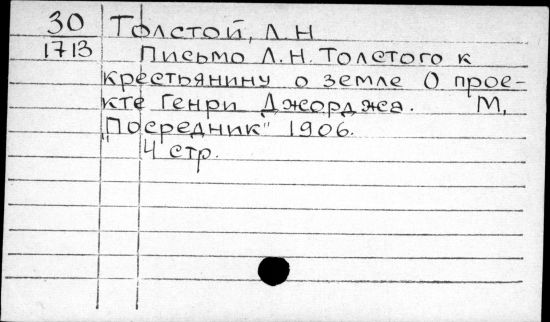 30 Толстой, Л. Н
1713 Письмо Л. Н. Толстого к
крестьянину о земле О прое-
кте Генри Джорджа. М,
"Посредник" 1906.
4 стр.